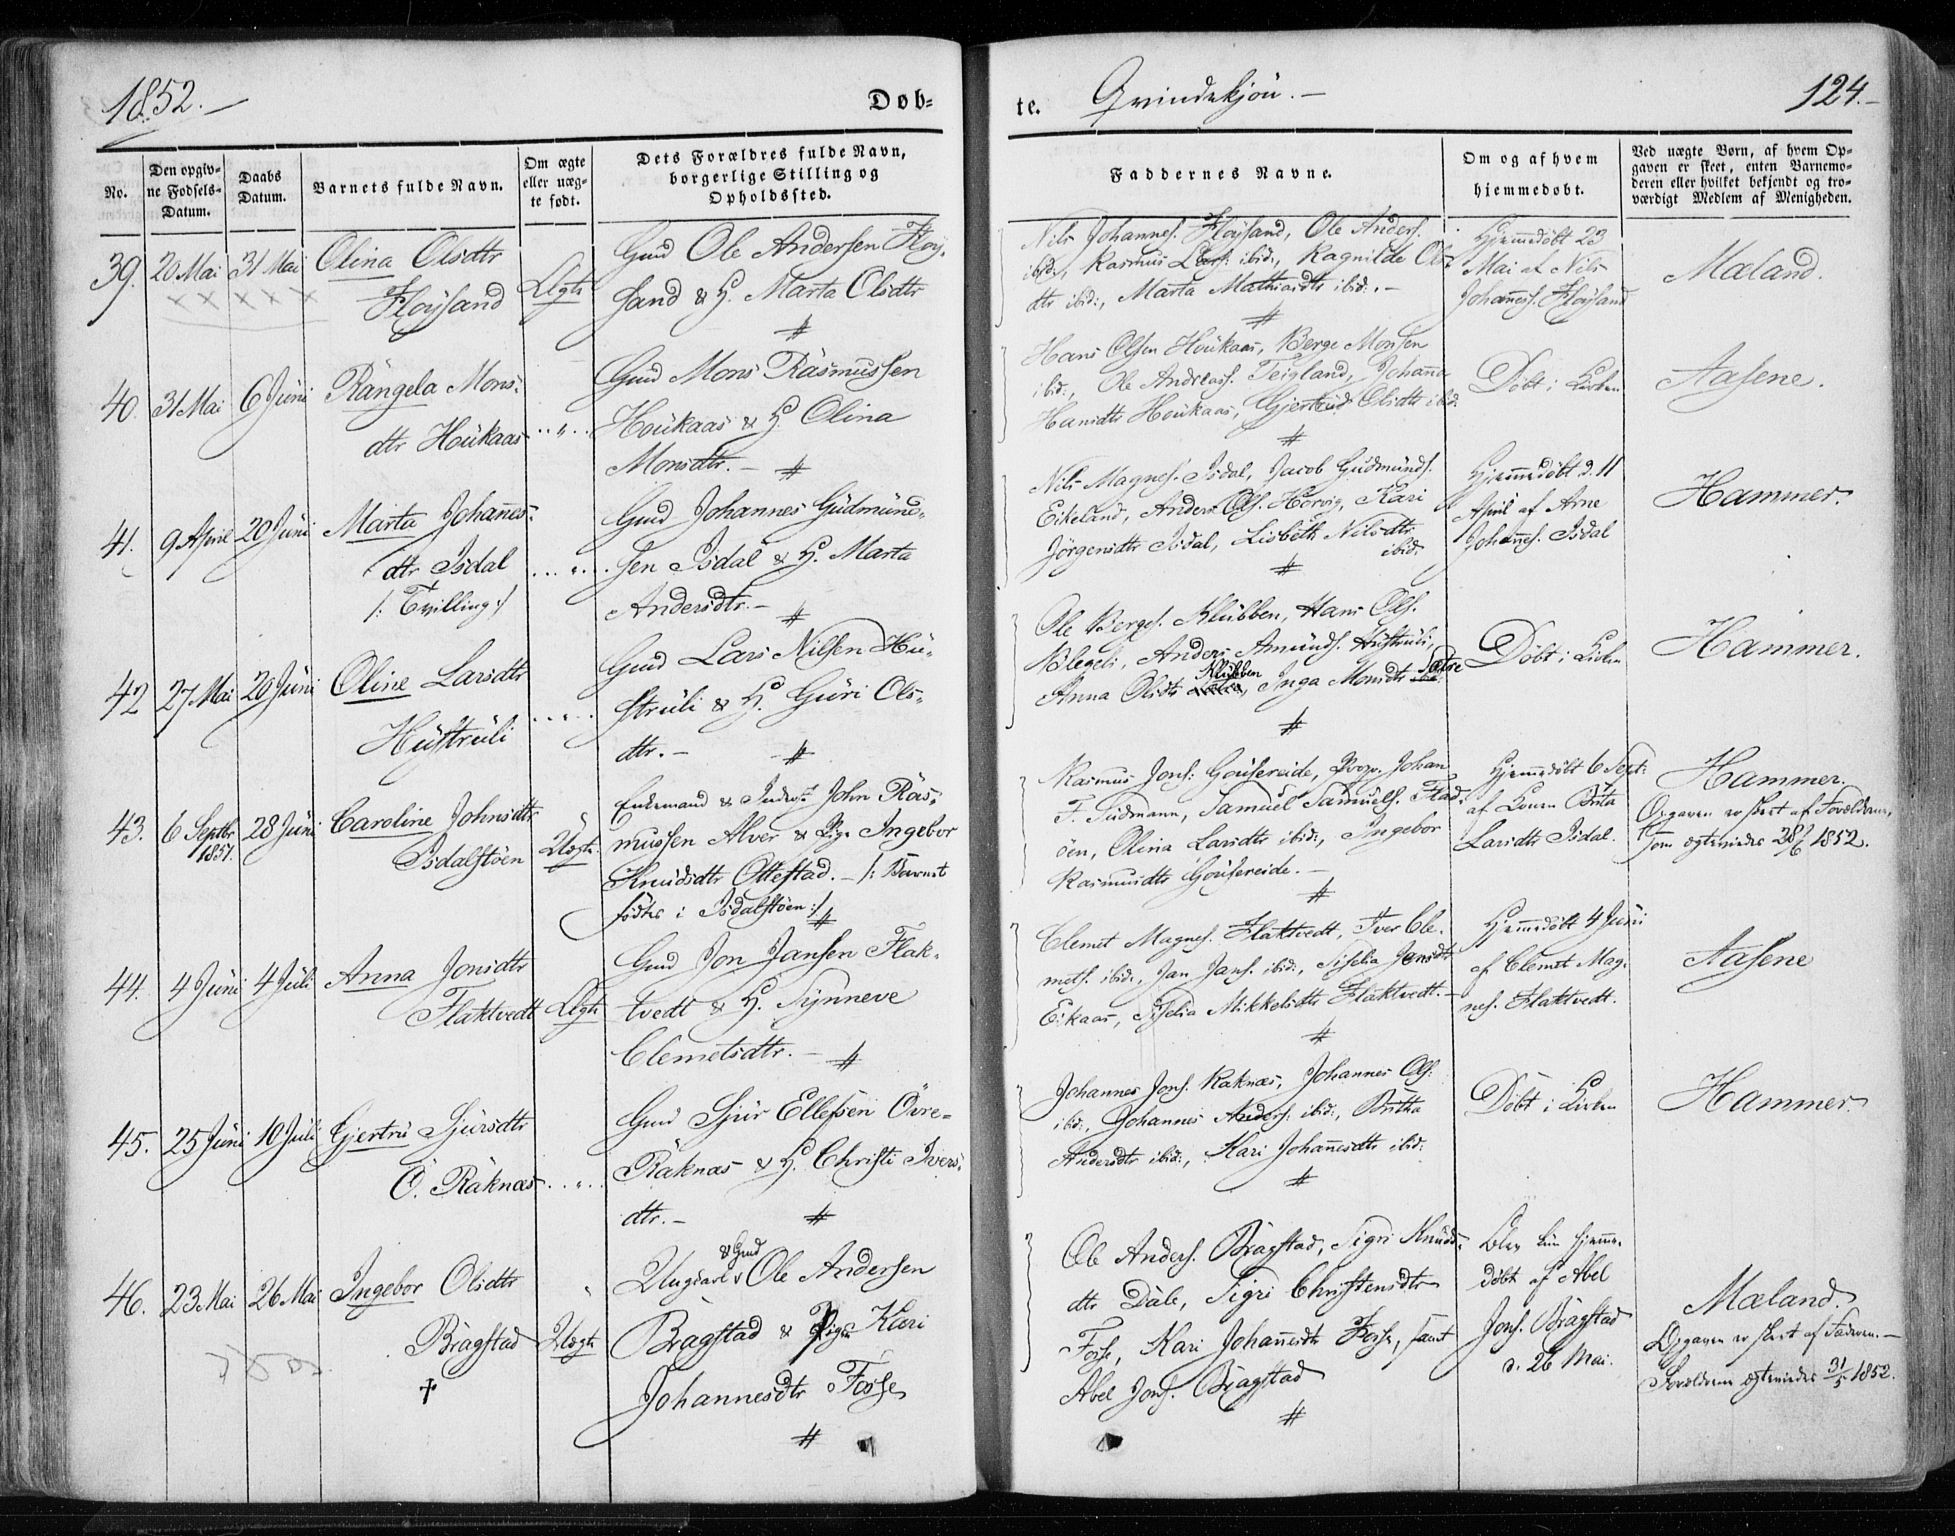 1852.
Døb-
te. Qvindekjön.
124.
No.
Den opgiv-
ne Fødsels-
Datum.
Daabs
Datum.
Barnets fulde Navn.
Om ægte
eller uæg-
te født.
Dets Forældres fulde Navn,
borgerlige Stilling og
Opholdssted.
Faddernes Navne.
Om og af hvem
hjemmedøbt.
Ved uægte Børn, af hvem Op-
gaven er skeet, enten Barnemo-
deren eller hvilket bekjendt og tro-
værdigt Medlem af Menigheden.
39. 20 Mai 31 Mai
Olina Olsdtr
Fløysand
Ægte
Gmd Ole Andersen Fløy-
sand & H. Marta Olsdtr
Nils Johannes. Fløysand, Ole Anders.
ibid:, Rasmus Lars. ibid:, Ragnilde Ols-
dtr ibid:, Marta Mathiasdtr ibid:.
Hjemmedöbt 23
Mai af Nils
Johannes. Fløysand
Mæland.
40. 31 Mai 6 Juni
Rangela Mons-
dtr Houkaas
Gmd Mons Rasmussen
Houkaas & H. Olina
Monsdtr.
Hans Olsen Houkaas, Berge Monsen
ibid:, Ole Andreas. Teigland, Johanna
Hansdtr Houkaas, Gjertrud Olsdtr ibid.
Döbt i Kirken
Aasene.
41. 9 April 20 Juni
Marta Johannes-
dtr Isdal
/: Tvilling :/
Gmd Johannes Gudmund-
sen Isdal & H. Marta
Andersdtr.
Nils Magnes. Isdal, Jacob Gudmunds.
Eikeland, Anders Ols. Horvig, Kari
Jörgensdtr Isdal, Lisbeth Nilsdtr
ibid.
Hjemmedöbt d. 11
April af Arne
Johannes. Isdal
Hammer.
42 27 Mai 20 Juni
Oline Larsdtr
Hustruli
Gmd Lars Nilsen Hu-
struli & H. Guri Ols-
dtr.
Ole Berges. Klubben, Hans Ols.
Blegeli, Anders Amunds. Hustruli,
Klubben
Anna Olsdtr, Inga Monsdtr Sætre
Döbt i Kirken
Hammer.
43. 6 Septbr 1851. 28 Juni
Caroline Johnsdtr
Isdalstöen
Uægte
Enkemand & Inderst John Ras-
mussen Alver & Pige Ingebor
Knudsdtr Ottestad. /: Barnet
födtes i Isdalstöen :/
Rasmus Jons. Gousereide, Prop. Johan
F. Tidmann, Samuel Samuels. Flad-
öen, Olina Larsdtr ibid:, Ingebor
Rasmusdtr Gousereide.
Hjemmedöbt 6 Sept:
af Konen Brita
Larsdtr Isdal.
Hammer.
Opgaven er skeet af Forældrene,
som ægtevies 28/6 1852.
44. 4 Juni 4 Juli
Anna Jonsdtr
Flaktvedt
Ægte
Gmd Jon Jansen Flak-
tvedt & H. Synneve
Clemetsdtr.
Clemet Magnes. Flaktvedt, Iver Cle-
mets. ibid:, Jan Jans. ibid:, Siselia Jensdtr
Eikaas, Siselia Mikkelsdtr Flaktvedt.
Hjemmedöbt 4 Juni
af Clemet Mag-
nes. Flaktvedt.
Aasene
45. 25 Juni 10 Juli
Gjertru Sjursdtr
Ö. Raknæs
Gmd Sjur Ellefsen Övre-
Raknæs & H. Christi Ivers-
dtr.
Johannes Jons. Raknæs, Johannes Ols:
ibid:, Johannes Anders. ibid:, Britha
Andersdtr ibid:, Kari Johannesdtr ibid:
Döbt i Kirken
Hammer.
46. 23 Mai 26 Mai
Ingebor Olsdtr
Bragstad
Uægte
& Gmd
Ungkarl Ole Andersen
Bragstad & Pige Kari
Johannesdtr Fosse
Ole Anders. Bragstad, Sigri Knuds-
dtr Dale, Sigri Christensdtr
Fosse, Kari Johannesdtr Fosse, samt
Abel Jons. Bragstad
Blev kun hjemme-
döbt af Abel
Jons. Bragstad
d. 26 Mai.
Mæland.
Opgaven er skeet af Faderen.
Forældrene ægteviedes 31/5 1852.